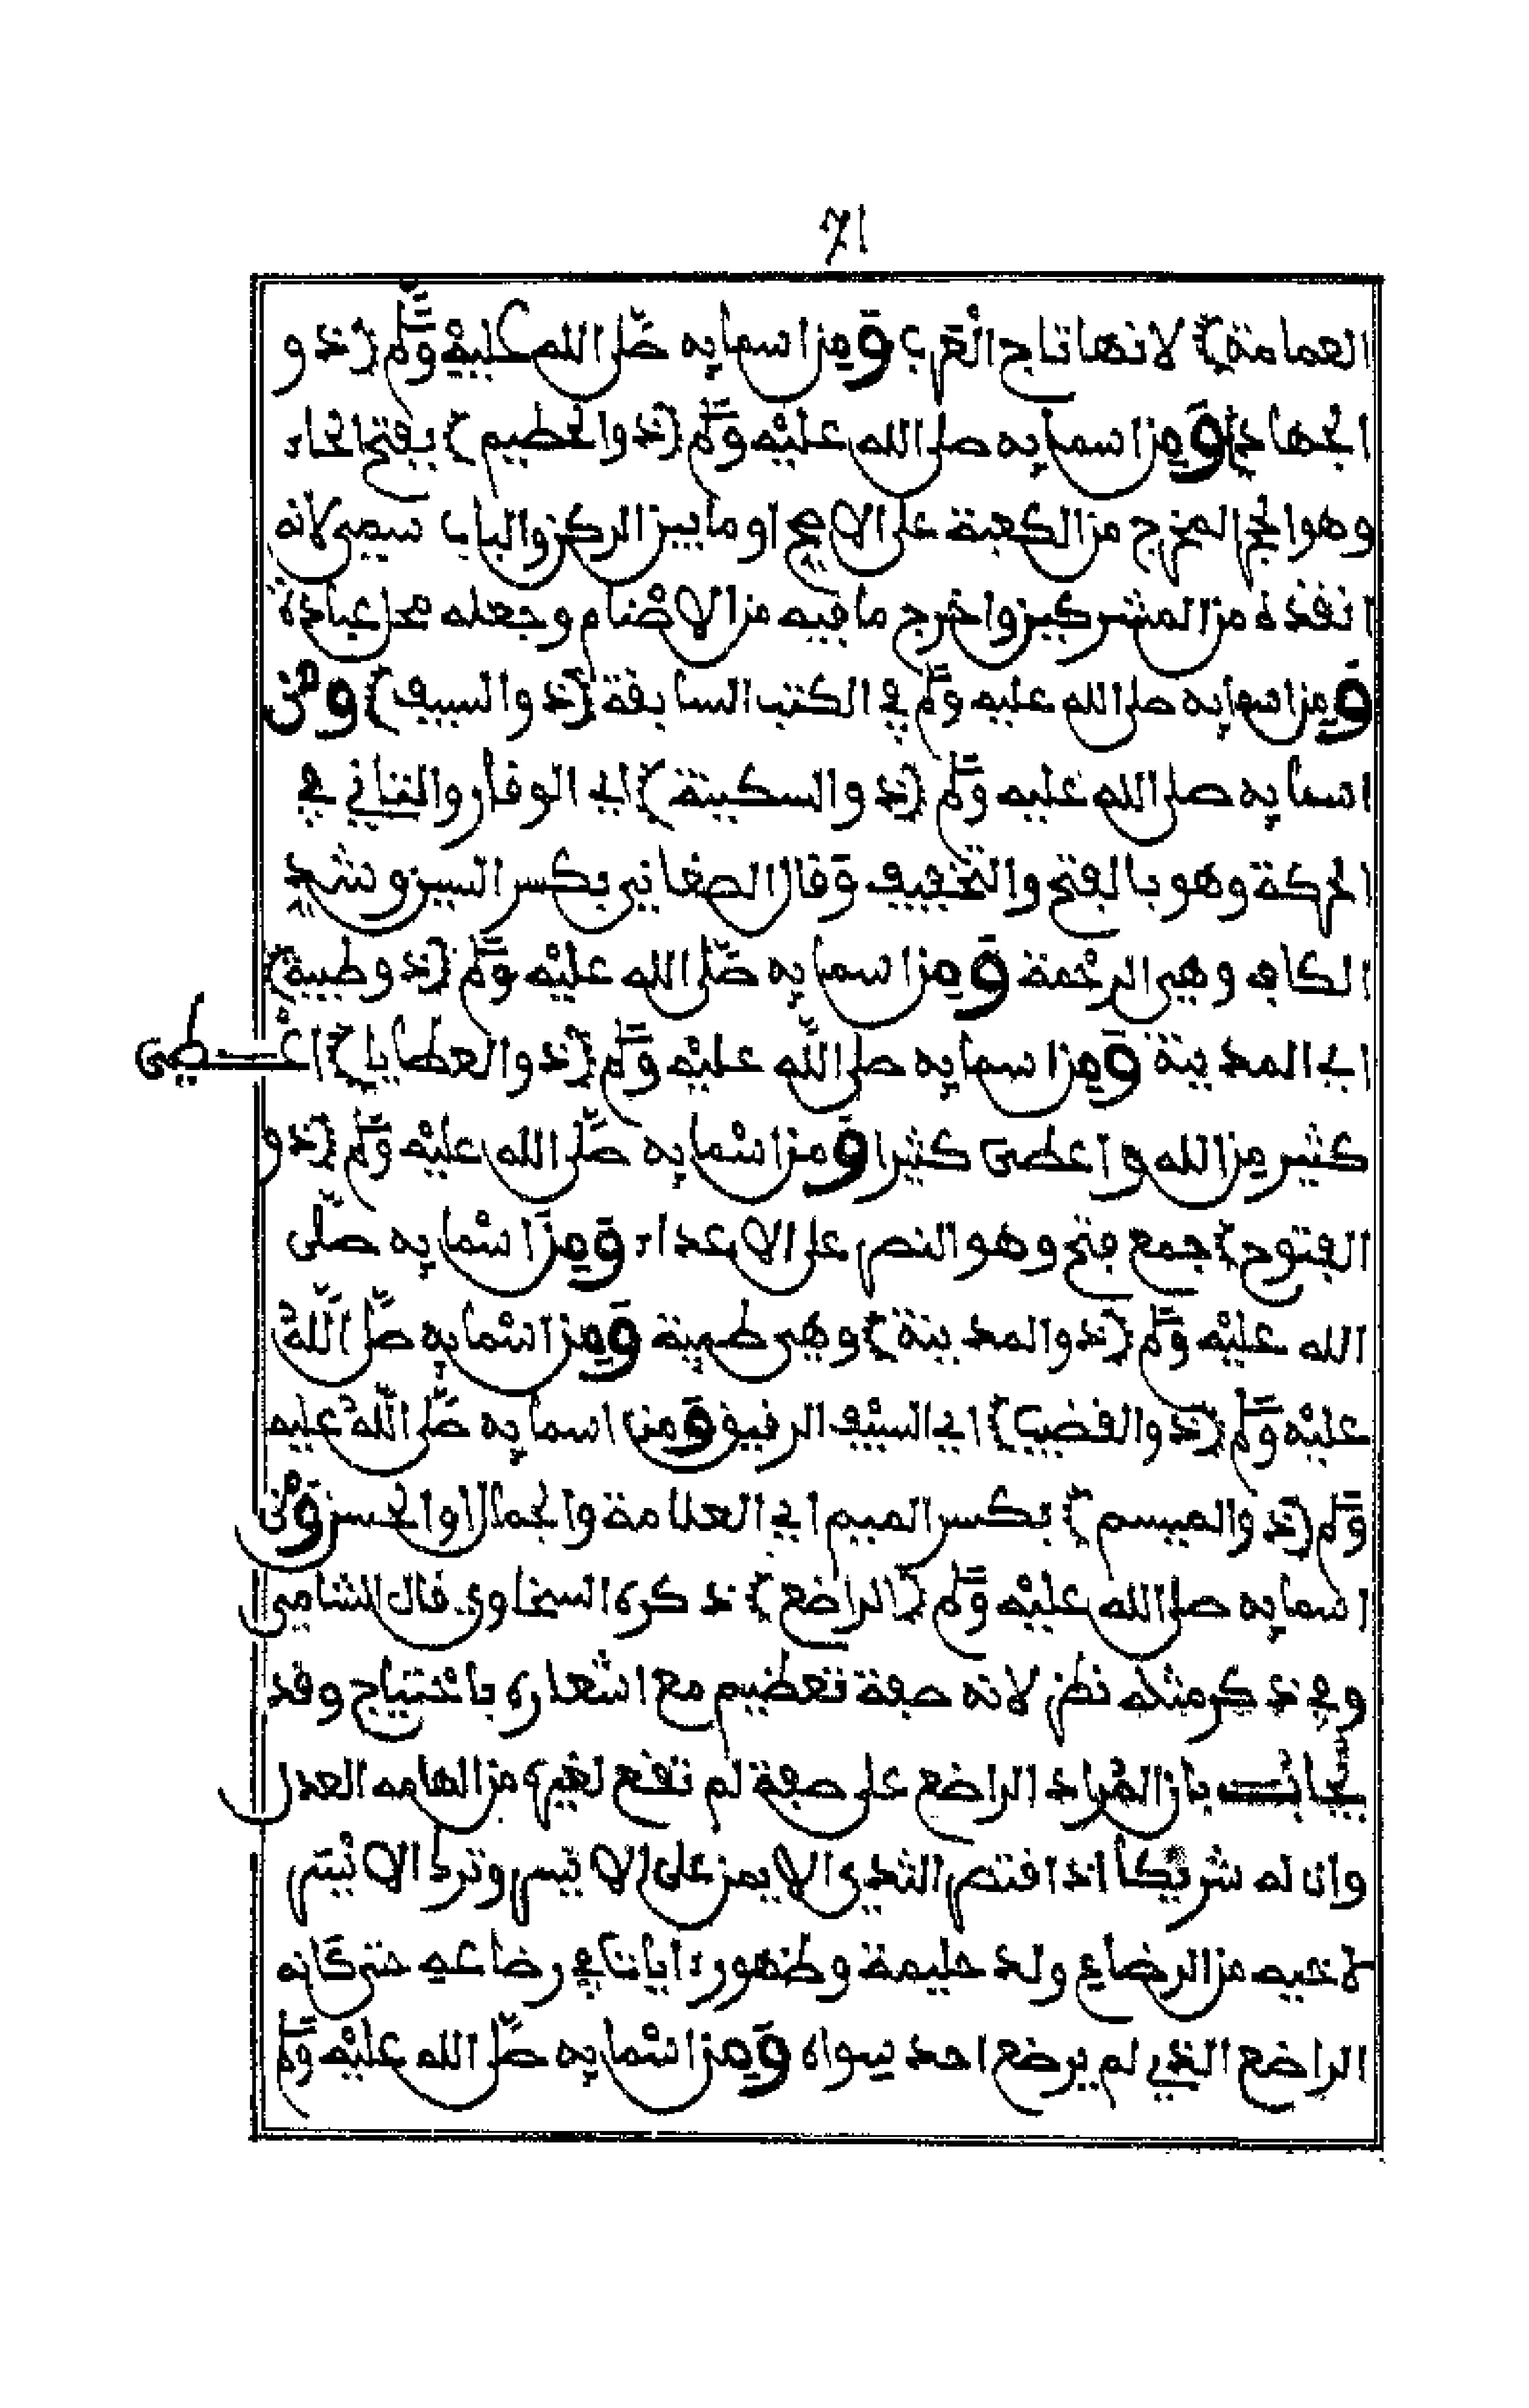 71
العمامة) لانها تاج العرب ومن اسمايه صلى الله عليه وسلم (ذو
الجهاد) ومن اسمايه صلى الله عليه وسلم (ذو الحطيم) بفتح الحاء
وهو الحجر المخرج من الكعبة على الاصح او ما بين الركن والباب سمي لانه
انقذه من المشركين واخرج ما فيه من الاصنام وجعله محل عبادة
ومن اسمايه صلى الله عليه وسلم في الكتب السابقة (ذو السيف) ومن
اسمايه صلى الله عليه وسلم (ذو السكينة) اي الوقار والتاني في
الحركة وهو بالفتح والتخفيف وقال الصغاني بكسر السين وتشديد
الكاف وهي الرحمة ومن اسمايه صلى الله عليه وسلم (ذو طيبة)
اي المدينة ومن اسمايه صلى الله عليه وسلم (ذو العطايا) اعطي
كثير من الله واعطى كثيرا ومن اسمايه صلى الله عليه وسلم (ذو
الفتوح) جمع فتح وهو النصر على الاعداء ومن اسمايه صلى
الله عليه وسلم (ذو المدينة) وهي طيبة ومن اسمايه صلى الله
عليه وسلم (ذو القضيب) اي السيف الرقيق ومن اسمايه صلى الله عليه
وسلم (ذو الميسم) بكسر الميم اي العلامة والجمال او الحسن ومن
اسمايه صلى الله عليه وسلم (الراضع) ذكره السخاوي قال الشامي
وفي ذكر مثله نظر لانه صفة تعظيم مع اشعاره باحتياج وقد
يجاب بان المراد الراضع على صفة لم تقع لغيره من الهامه العدل
وان له شريكا اذا قتصر الثدي الايمن على الايسر وترك الايسر
لاخيه من الرضاع ولد حليمة وظهور ايات في رضاعه حتى كانه
الراضع الذي لم يرضع احد سواه ومن اسمايه صلى الله عليه وسلم